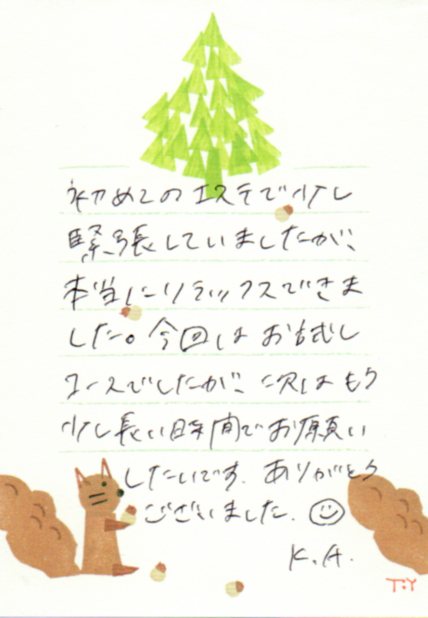 初めてのエステで少し
緊張していましたが、
本当にリラックスできま
した。今回はお試し
コースでしたが、次はもう
少し長い時間でお願い
したいです。ありがとう
ございました。☺
K.A.
T.Y